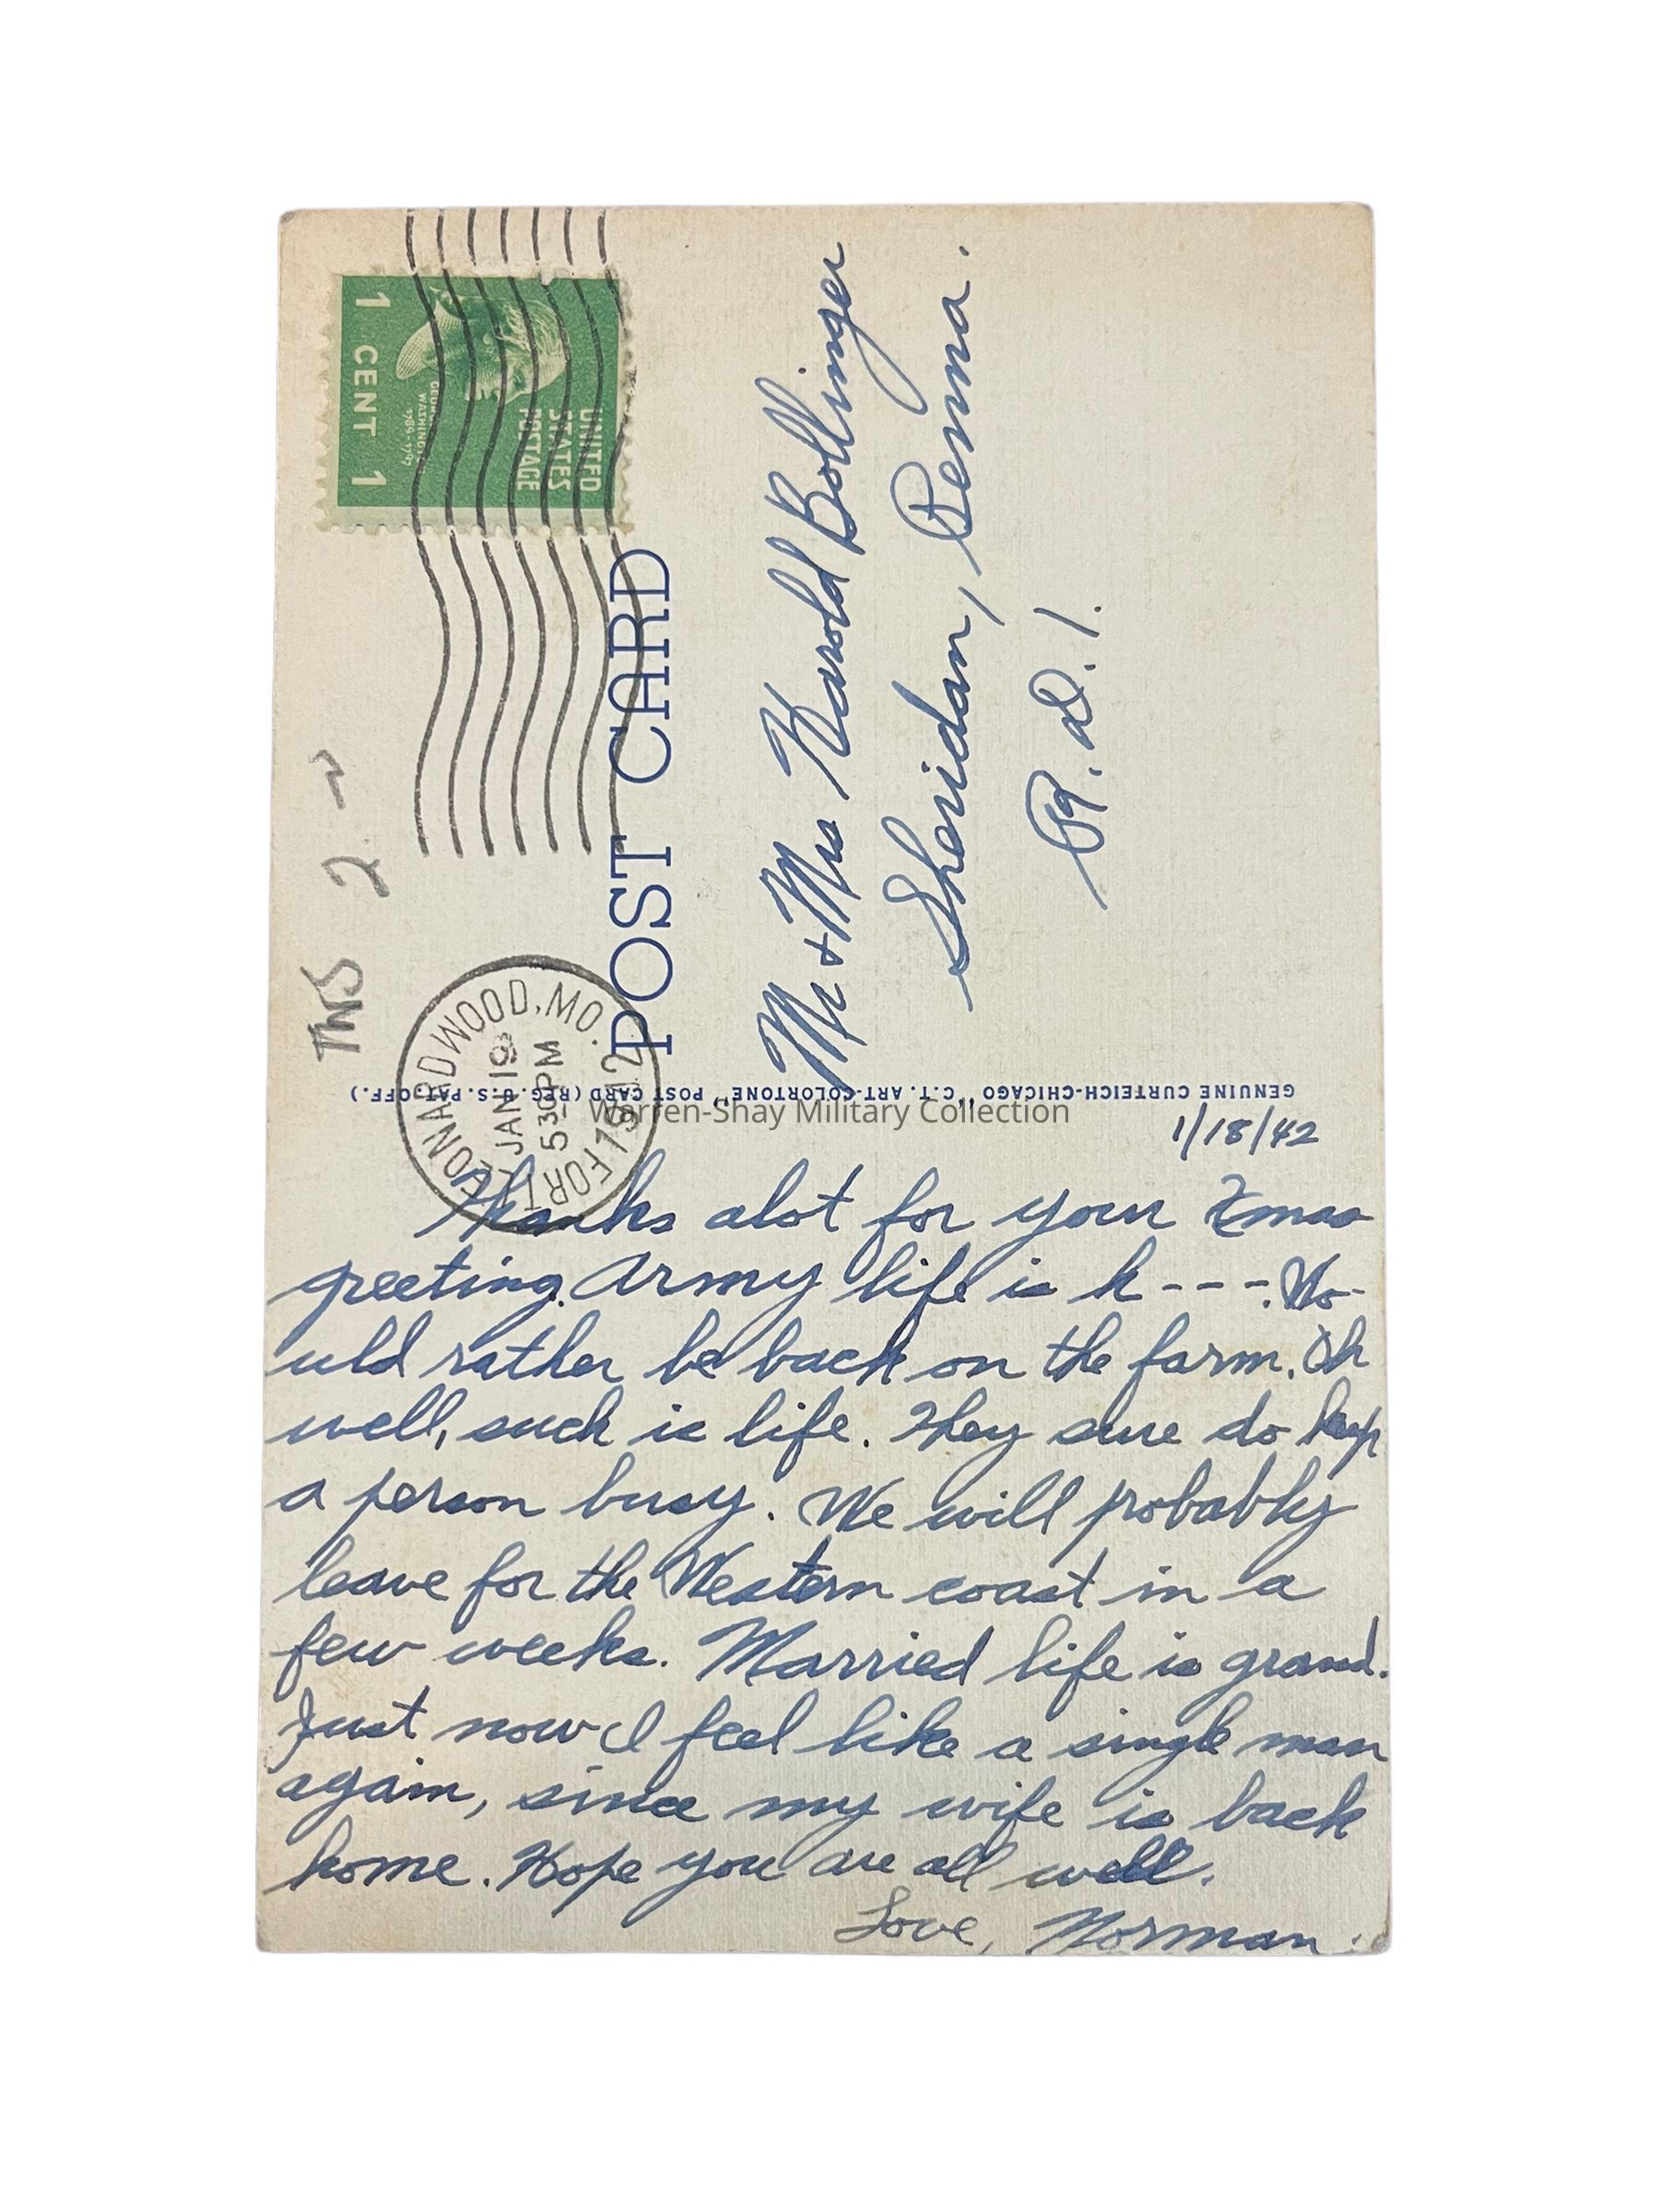 1 CENT 1
GEORGE
WASHINGTON
1789-1797
UNITED
STATES
POSTAGE
FORT LEONARD WOOD, MO.
JAN 19
5 30 PM
1942
POST CARD
Mr + Mrs Harold Bollinger
Sheridan, Penna.
R. D. 1.
GENUINE CURTEICH-CHICAGO "C.T. ART-COLORTONE" POST CARD (REG. U.S. PAT. OFF.)
Warren-Shay Military Collection
1/18/42
Thanks alot for your Xmas
greeting. Army life is h---. Wo-
uld rather be back on the farm. Oh
well, such is life. They sure do keep
a person busy. We will probably
leave for the Western coast in a
few weeks. Married life is grand.
Just now I feel like a single man
again, since my wife is back
home. Hope you are all well.
Love, Norman.